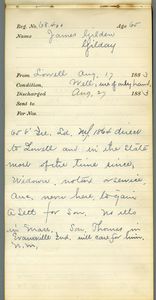 Reg. No. 68,464 Age 60
Name James Gilden
Gilday
From Lowell Aug. 17 1885
Condition, Well, one of only hand,
Discharged Aug. 27 1885
Sent to
For Nos.
60 Y. Ire. Ld. NY 1864 direct
to Lowell and in the State
most of the time since,
Widower, not ard or service,
Ans, never here, to gain
a Sett for Son, No
in Mass, Son, Thomas in
Evansville Ind, will care for him.